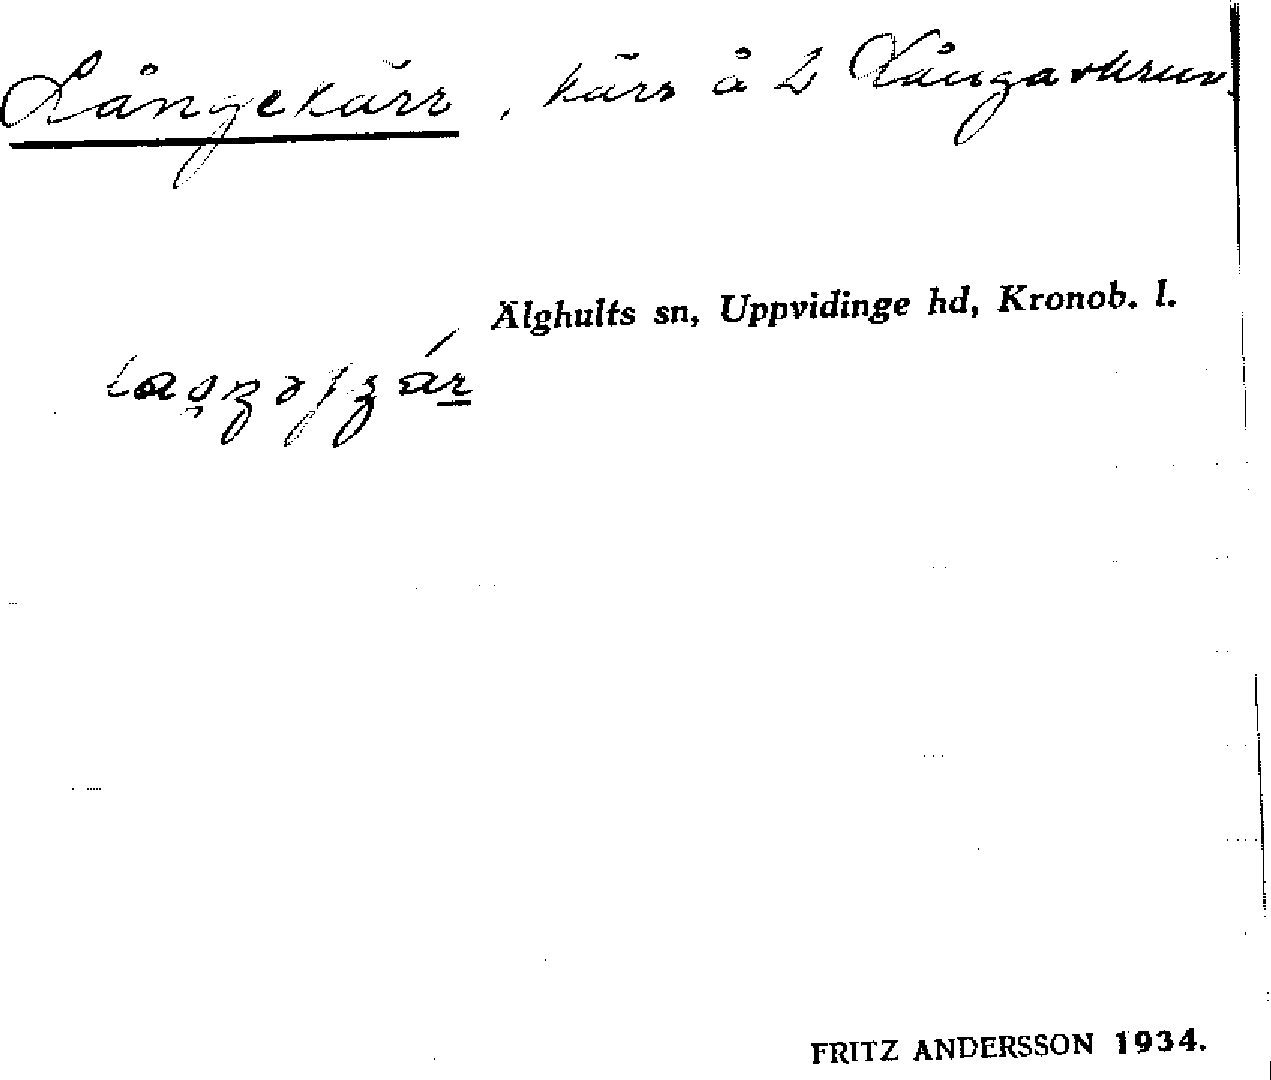 Långekärr, kärr å L Långaskruv.
Älghults sn, Uppvidinge hd, Kronob. l.
FRITZ ANDERSSON 1934.